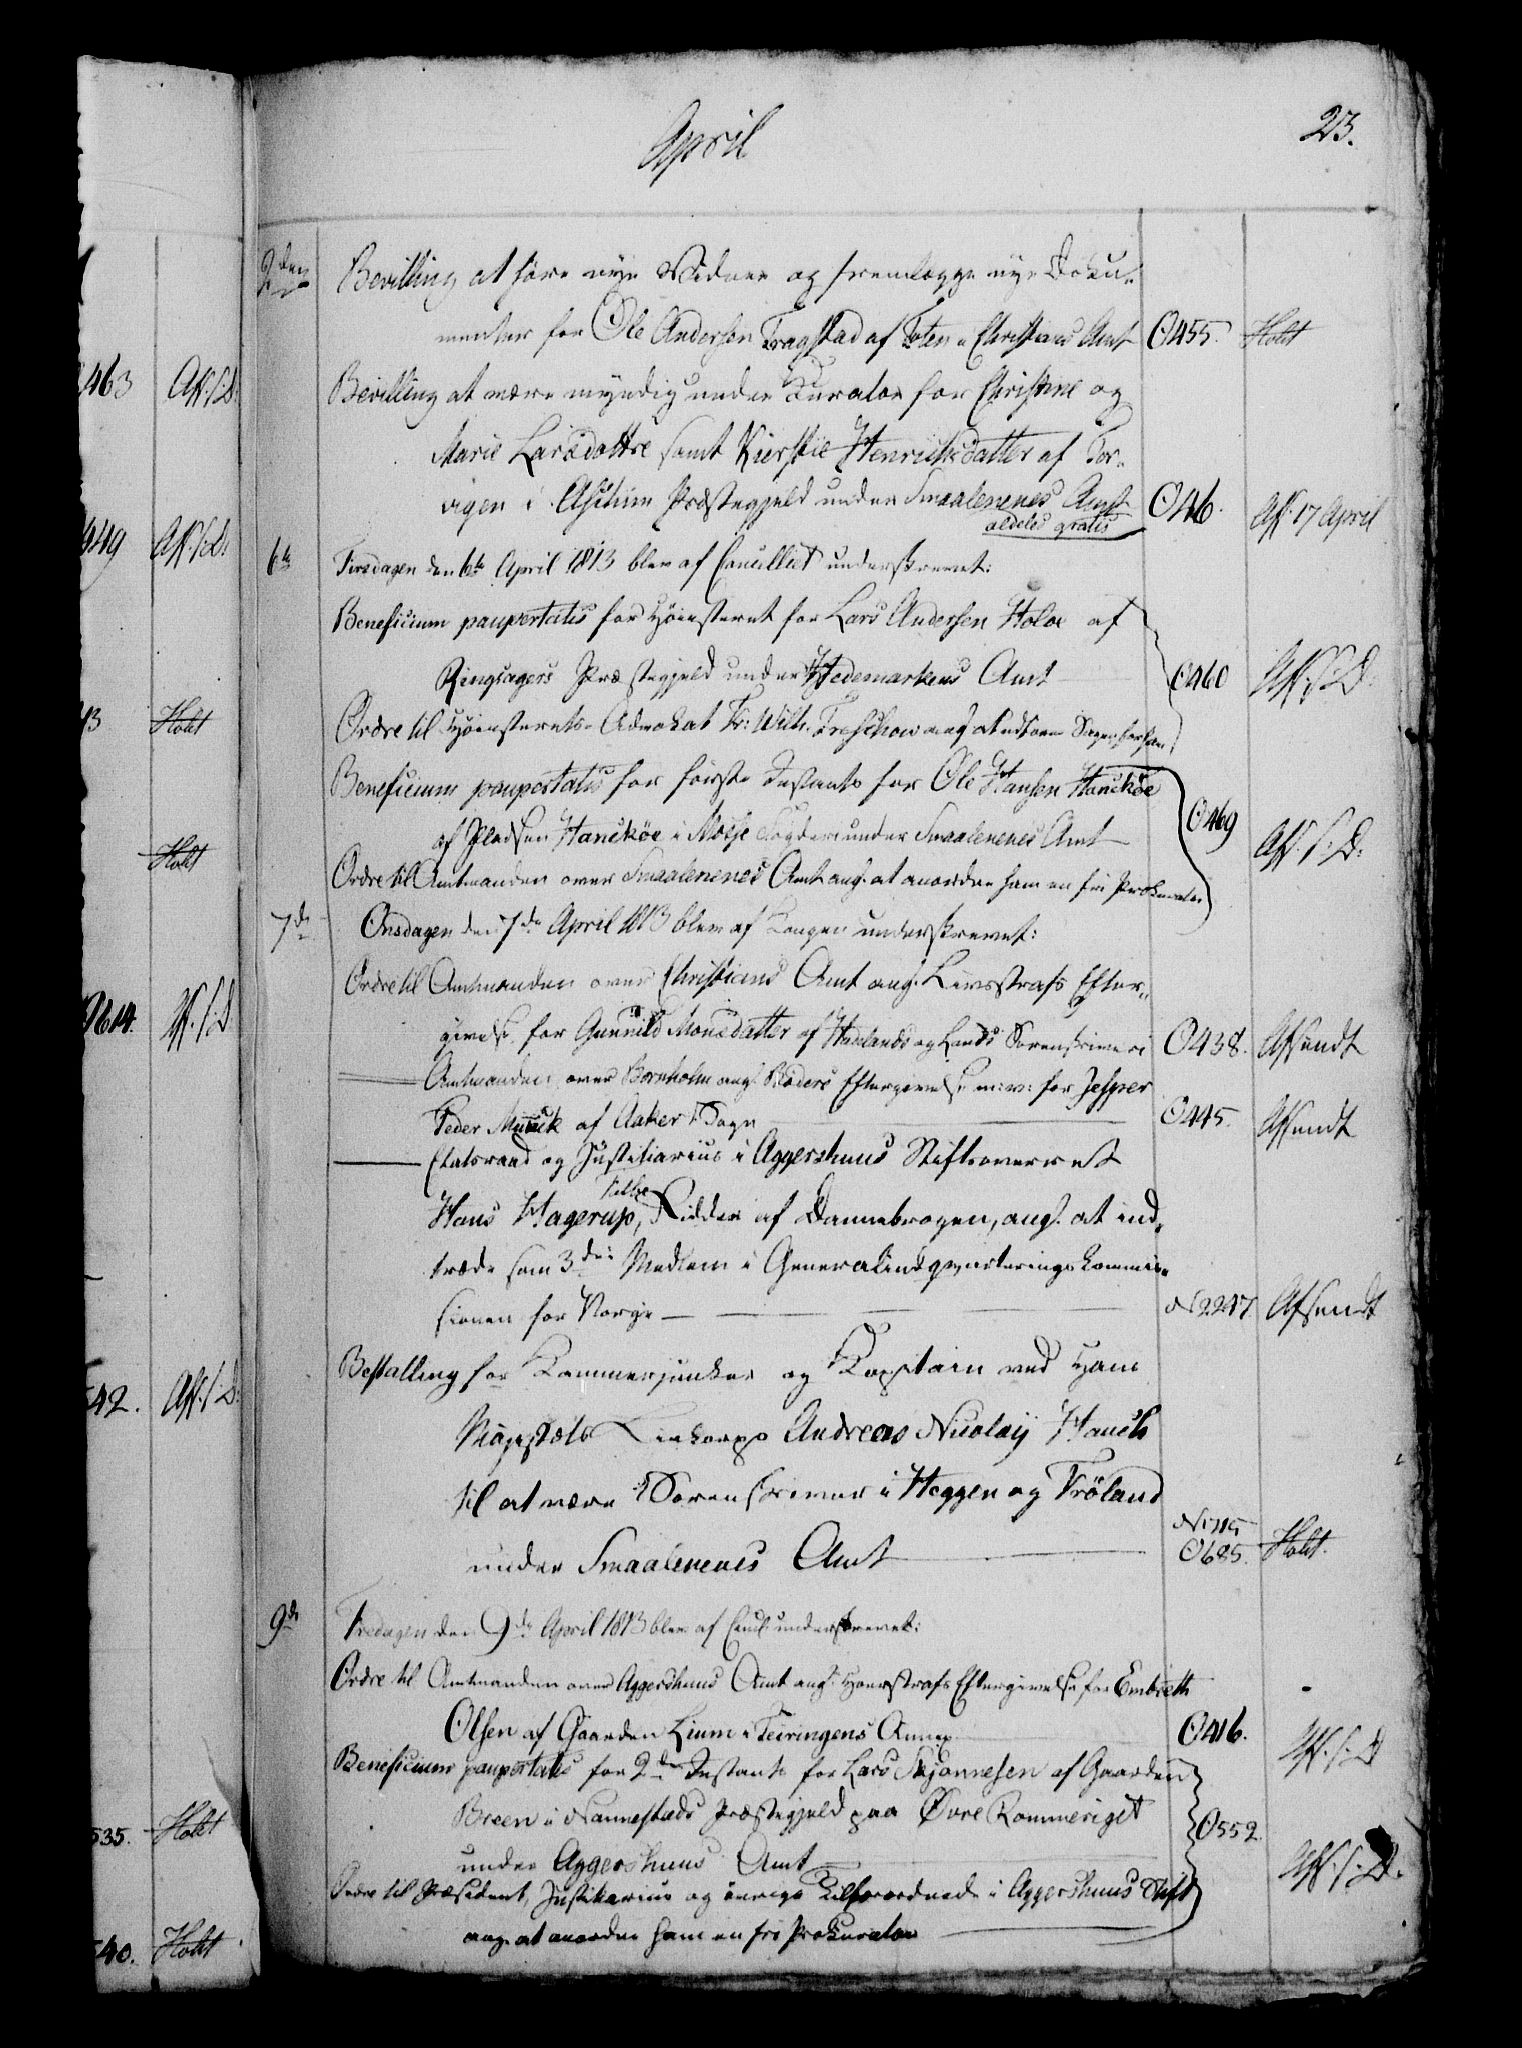 April
23.
2den Bevilling at føre nye Vidner og fremlægge nye Doku-
menter for Ole Andersen Fragstad af Toten i Christians Amt O455. Holst
Bevilling at være myndig under Kurator for Christine og
Marie Larsdøttre samt Kierstie Henrichsdatter af Tor-
vigen i Aschim Præstegjeld under Smaalenenes Amt O46. Aff. 17 April
aldeles gratis
6te Tirsdagen den 6te April 1813 blev af Cancelliet underskrevet:
Beneficium paupertatis for Høiesteret for Lars Andersen Holoe af
Ringsagers Præstegjeld under Hedemarkens Amt O460 Aff. s: D:
Ordre til Høiesterets-Advokat Fr: Wilh. Treschow ang. at udføre Sagen for ham
Beneficium paupertatis for første Instants for Ole Hansen Hanekøe
af Pladsen Hanekøe i Mosse Fogderi under Smaalenenes Amt O469 Aff. s: D:
Ordre til Amtmanden over Smaalenenes Amt ang. at anordne ham en fri Prokurator
7de Onsdagen den 7de April 1813 blev af Kongen underskrevet:
Ordre til Amtmanden over Christians Amt ang. Livsstrafs Efter-
givelse for Gunnild Monsdatter af Hadelands og Lands Sorenskriveri O438. Afsendt
Amtmanden over Bornholm ang. Bøders Eftergivelse m: v: for Jesper
Peder Munck af Aaker Sogn O445. Afsendt
Etatsraad og Justitiarius i Aggershuus Stiftsoverret
Hans Hagerup, Ridder af Dannebrogen, ang. at ind-
træde som 3die Medlem i Generalindqvarterings Kommis-
sionen for Norge N2247. Afsendt
Bestalling for Kammerjunker og Kaptain ved Hans
Majestæts Livkorps Andreas Nicolay Hauch
til at være Sorenskriver i Heggen og Frøland
under Smaalenenes Amt N1715 O685. Holst.
9de Fredagen den 9de April 1813 blev af Canc. underskrevet:
Ordre til Amtmanden over Aggershuus Amt ang. Hoerstrafs Eftergivelse for Embreth
Olsen af Gaarden Lium i Feiringens Annex O416. Aff. s: D
Beneficium paupertatis for 2den Instants for Lars Skjønnesen af Gaarden
Breen i Nannestads Præstegjeld paa Øvre Rommeriget O552.
under Aggershuus Amt Aff. s: D.
Ordre til Præsident, Justitiarius og øvrige Tilforordnede i Aggershuus Stift
ang. at anordne ham en fri Prokurator
463 Aff. s: D:
449 Aff. s: D:
43 Holst
Holst
9614. Aff. s: D
542. Aff. s: D:
535. Holst
540. Holst